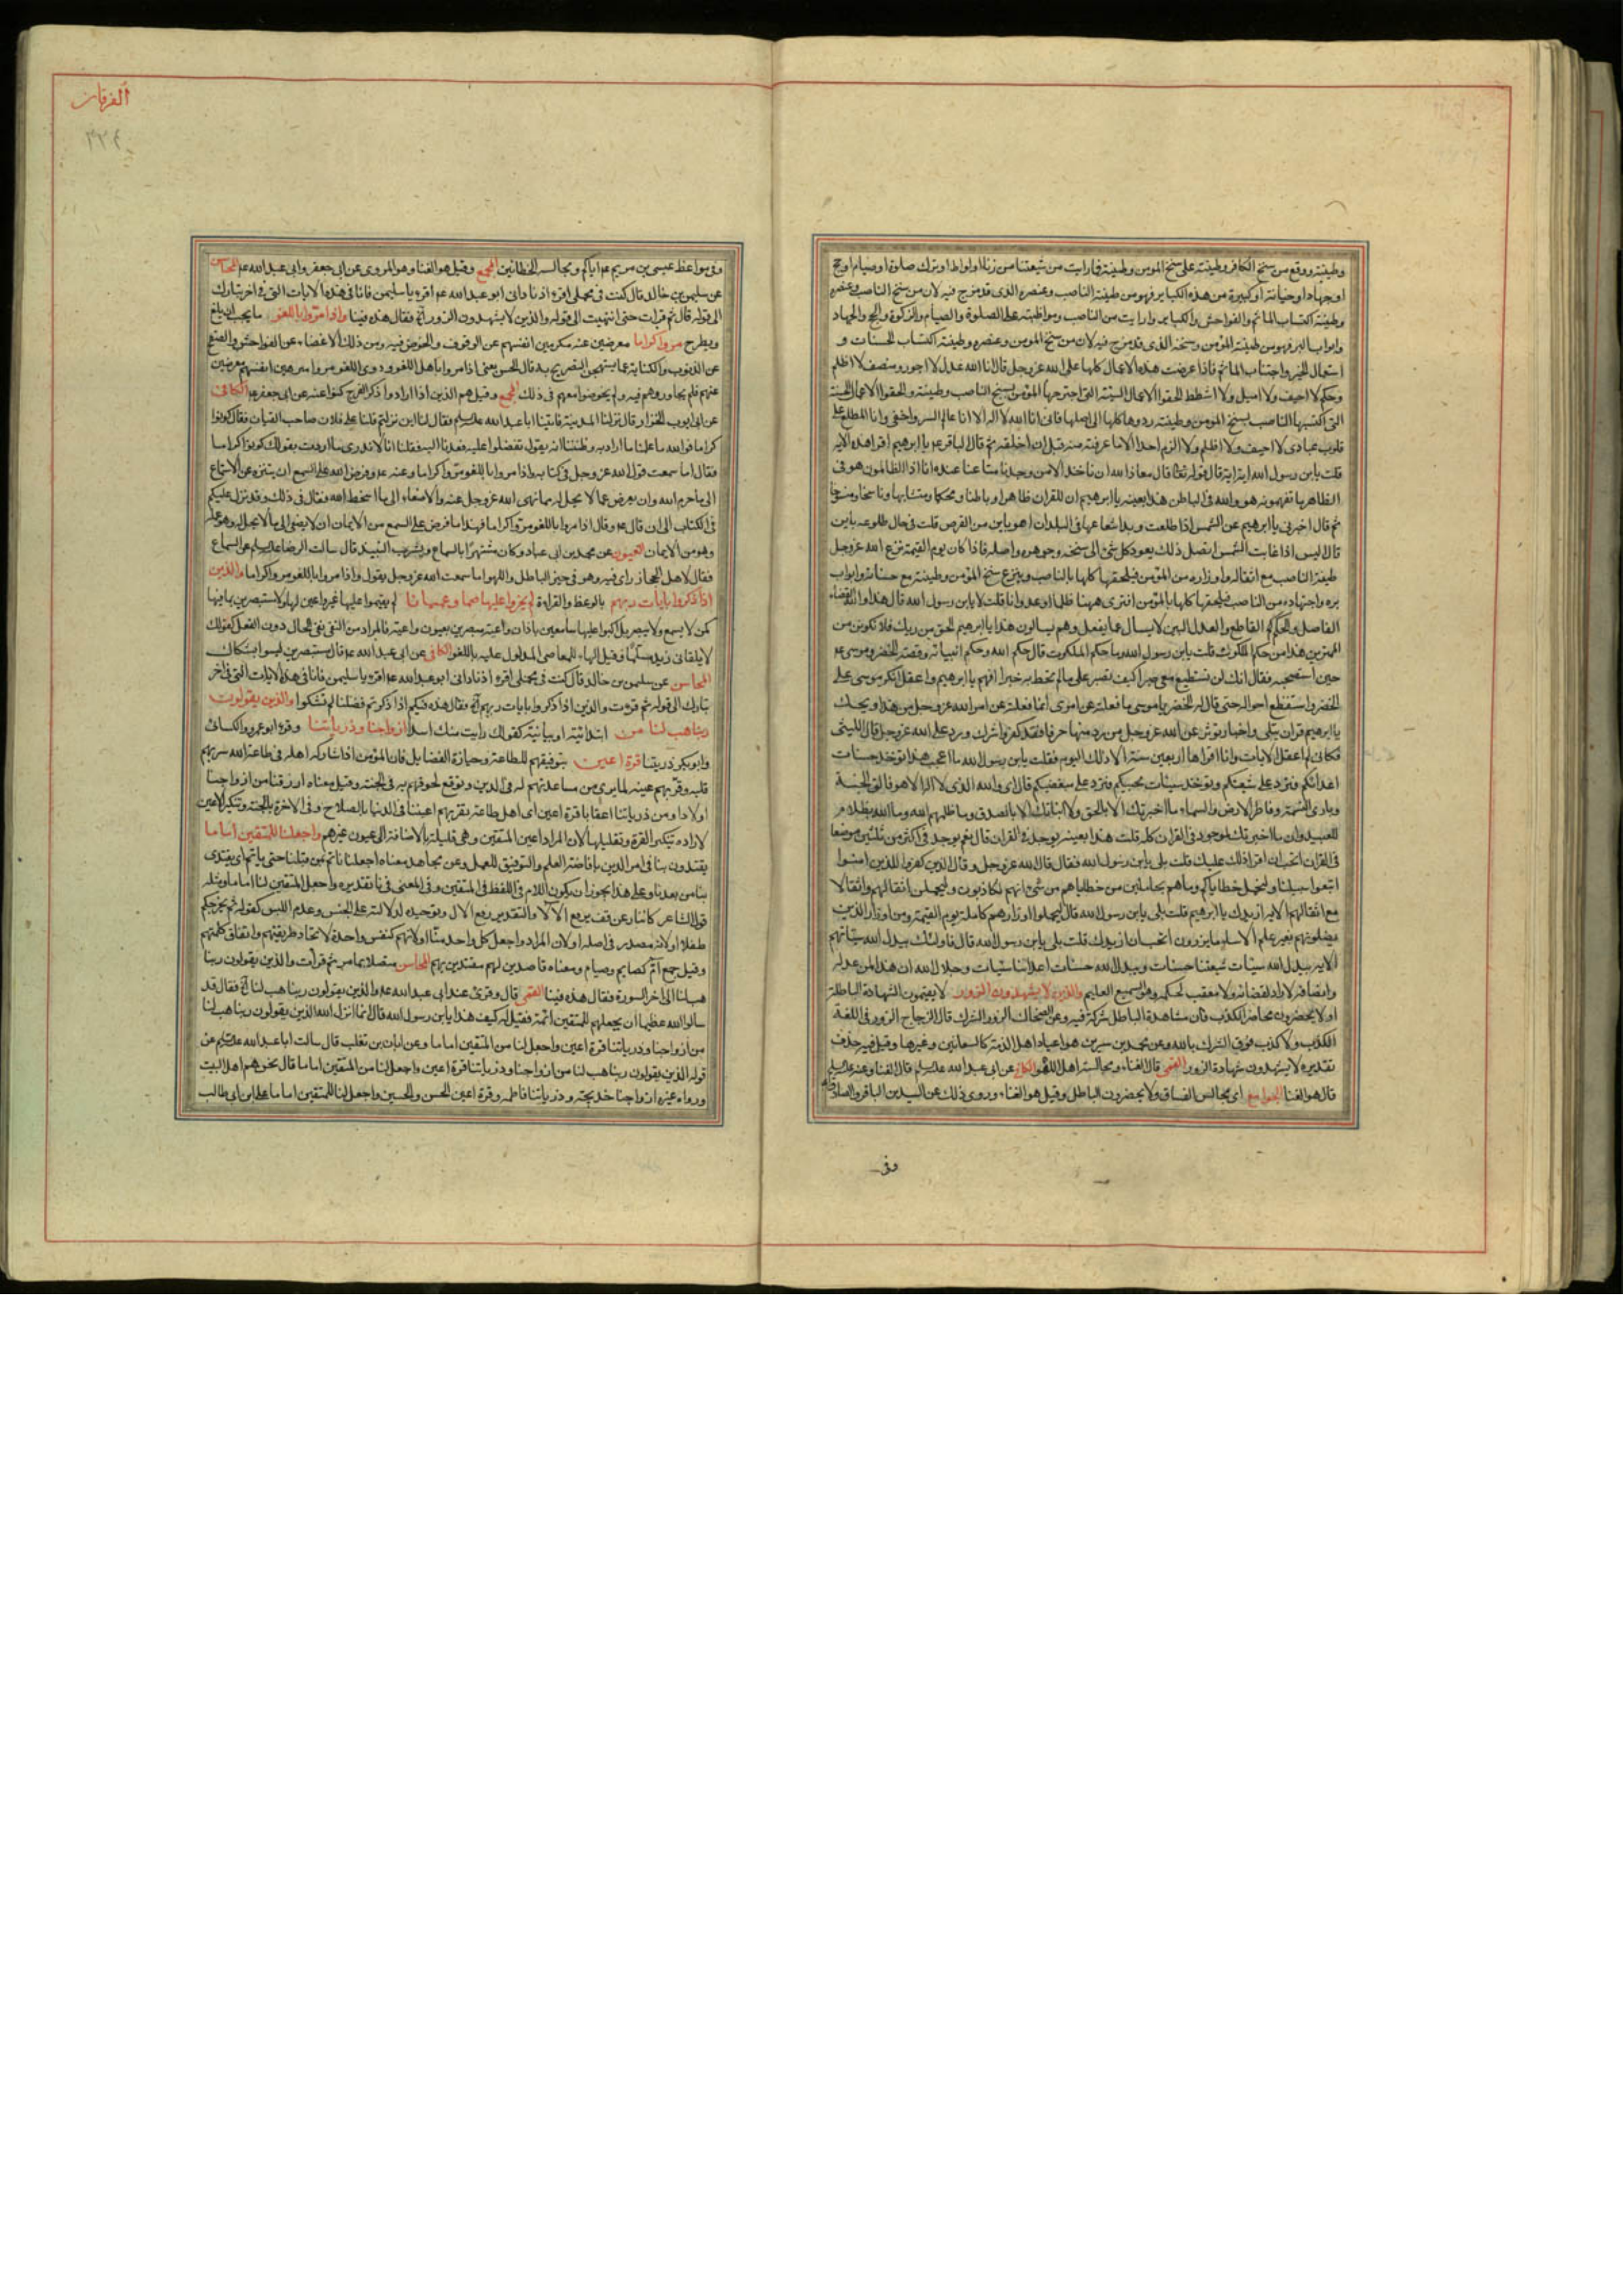 وطينته ووقع من سنخ الكافر وطينته على سنخ المؤمن وطينته فما رايت من شيعتنا من زنا او لواط او ترك صلوة او صيام او حج
او جهاد او خيانة او كبيرة من هذه الكبائر فهو من طينة الناصب وعنصره الذى قد مزج فيه لان من سنخ الناصب وعنصره
وطينته اكتساب المآثم والفواحش والكبائر وما رايت من الناصب ومواظبته على الصلوة والصيام والزكوة والحج والجهاد
وابواب البر فهو من طينة المؤمن وسنخه الذى قد مزج فيه لان من سنخ المؤمن وعنصره وطينته اكتساب الحسنات و
استعمال الخير واجتناب المآثم فاذا عرضت هذه الاعمال كلها على الله عز وجل قال انا الله عدل لا اجور ومنصف لا اظلم
وحكم لا احيف ولا اميل ولا اشطط الحقوا الاعمال السيئة التى اجترحها المؤمن بسنخ الناصب وطينته والحقوا الاعمال الحسنة
التى اكتسبها الناصب بسنخ المؤمن وطينته ردوها كلها الى اصلها فانى انا الله لا اله الا انا عالم السر واخفى وانا المطلع على
قلوب عبادى لا احيف ولا اظلم ولا الزم احدا الا ما عرفته منه قبل ان اخلقه ثم قال الباقر عم يا ابرهيم اقرا هذه الاية
قلت يابن رسول الله اية اية قال قوله تعا قال معاذ الله ان ناخذ الا من وجدنا متاعنا عنده انا اذا لظالمون هو فى
الظاهر ما تفهمونه هو والله فى الباطن هذا بعينه يا ابرهيم ان للقران ظاهرا وباطنا ومحكما ومتشابها وناسخا ومنسوخا
ثم قال اخبرنى يا ابرهيم عن الشمس اذا طلعت وبدا شعاعها فى البلدان اهو باين من القرص قلت فى حال طلوعه باين
قال اليس اذا غابت الشمس اتصل ذلك يعود كل شئ الى سنخه وجوهره واصله فاذا كان يوم القيمة نزع الله عز وجل
طينة الناصب مع اثقاله واوزاره من المؤمن فيلحقها كلها بالناصب وينزع سنخ المؤمن وطينته مع حسناته وابواب
بره واجتهاده من الناصب فيلحقها كلها بالمؤمن افترى ههنا ظلما او عدوانا قلت لا يابن رسول الله قال هذا والله القضاء
الفاصل والحكم القاطع والعدل البين لا يسال عما يفعل وهم يسالون هذا يا ابرهيم الحق من ربك فلا تكونن من
الممترين هذا من حكم الملكوت قلت يابن رسول الله وما حكم الملكوت قال حكم الله وحكم انبيائه وقصة الخضر وموسى عم
حين استصحبه فقال انك لن تستطيع معى صبرا وكيف تصبر على ما لم تحط به خبرا افهم يا ابرهيم واعقل انكر موسى على
الخضر واستفظع افعاله حتى قال له الخضر يا موسى ما فعلته عن امرى انما فعلته عن امر الله عز وجل من هذا ويحك
يا ابرهيم قران يتلى واخبار تؤثر عن الله عز وجل من رد منها حرفا فقد كفر واشرك ورد على الله عز وجل قال الليثى
فكانى لم اعقل الايات وانا اقراها اربعين سنة الا ذلك اليوم فقلت يابن رسول الله ما اعجب هذا تؤخذ حسنات
اعدائكم فترد على شيعتكم وتؤخذ سيئات محبيكم فترد على مبغضيكم قال اى والله الذى لا اله الا هو فالق الحبة
وبارئ النسمة وفاطر الارض والسماء ما اخبرتك الا بالحق ولا انباتك الا بالصدق وما ظلمهم الله وما الله بظلام
للعبيد وان ما اخبرتك لموجود فى القران كله قلت هذا بعينه يوجد فى القران قال نعم يوجد فى اكثر من ثلثين موضعا
فى القران اتحب ان اقرا ذلك عليك قلت بلى يابن رسول الله فقال قال الله عز وجل وقال الذين كفروا للذين امنوا
اتبعوا سبيلنا ولنحمل خطاياكم وما هم بحاملين من خطاياهم من شئ انهم لكاذبون وليحملن اثقالهم واثقالا
مع اثقالهم الاية ازيدك يا ابرهيم قلت بلى يابن رسول الله قال ليحملوا اوزارهم كاملة يوم القيمة ومن اوزار الذين
يضلونهم بغير علم الا ساء ما يزرون اتحب ان ازيدك قلت بلى يابن رسول الله قال فاولئك يبدل الله سيئاتهم
الاية يبدل الله سيئات شيعتنا حسنات ويبدل الله حسنات اعدائنا سيئات وجلال الله ان هذا لمن عدله
وانصافه لا راد لقضائه ولا معقب لحكمه وهو السميع العليم والذين لا يشهدون الزور لا يقيمون الشهادة الباطلة
او لا يحضرون محاضر الكذب فان مشاهدة الباطل شركة فيه وعن الضحاك الزور الشرك قال الزجاج الزور فى اللغة
الكذب ولا كذب فوق الشرك بالله وعن محمد بن سيرين هو اعياد اهل الذمة كالسعانين وغيرها وقيل فيه حذف
تقديره لا يشهدون شهادة الزور القمى قال الغناء ومجالسة اهل اللهو الكافى عن ابى عبد الله عليه السلم قال الغنا وعنه عليه السلم
قال هو الغنا الجوامع اى مجالس الفساق ولا يحضرون الباطل وقيل هو الغناء وروى ذلك عن السيدين الباقر والصادق
وفى
الفرقان
٣٢٤
وفى مواعظ عيسى بن مريم عم اياكم ومجالسة الخطائين المجمع وقيل هو الغنا وهو المروى عن ابى جعفر وابى عبد الله عم المحاسن
عن سليمن بن خالد قال كنت فى محملى اقرء اذ نادانى ابو عبد الله عم اقرء يا سليمن فانا فى هذه الايات التى فى اخر تبارك
الى قوله قال ثم قرات حتى انتهيت الى قوله والذين لا يشهدون الزور آه فقال هذه فينا واذا مروا باللغو ما يجب ان يلغى
ويطرح مروا كراما معرضين عنه مكرمين انفسهم عن الوقوف والخوض فيه ومن ذلك الاغضاء عن الفواحش والصفح
عن الذنوب والكناية عما يستهجن التصريح به قال الحسن يعنى اذا مروا باهل اللغو وذوى اللغو مروا منزهين انفسهم معرضين
عنهم فلم يجاوروهم فيه ولم يخوضوا معهم فى ذلك المجمع وقيل هم الذين اذا ارادوا ذكر الفرج كنوا عنه عن ابى جعفر عم الكافى
عن ابى ايوب الخزاز قال نزلنا المدينة فاتينا ابا عبد الله عليه السلم فقال لنا اين نزلتم قلنا على فلان صاحب القيان فقال كونوا
كراما فوالله ما علمنا ما اراد به وظننا انه يقول تفضلوا عليه فعدنا اليه فقلنا انا لا ندرى ما اردت بقولك كونوا كراما
فقال اما سمعت قول الله عز وجل فى كتابه واذا مروا باللغو مروا كراما وعنه عم وفرض الله على السمع ان يتنزه عن الاستماع
الى ما حرم الله وان يعرض عما لا يحل له مما نهى الله عز وجل عنه والاصغاء الى ما اسخط الله فقال فى ذلك وقد نزل عليكم
فى الكتاب الى ان قال عم وقال اذا مروا باللغو مروا كراما فهذا ما فرض على السمع من الايمان ان لا يصغى الى ما لا يحل له وهو عمله
وهو من الايمان العيون عن محمد بن ابى عباد وكان مشتهرا بالسماع ويشرب النبيذ قال سالت الرضا عليه السلم عن السماع
فقال لاهل الحجاز راى فيه وهو فى حيز الباطل واللهو اما سمعت الله عز وجل يقول واذا مروا باللغو مروا كراما والذين
اذا ذكروا بايات ربهم بالوعظ والقراءة لم يخروا عليها صما وعميانا لم يقيموا عليها غير واعين لها ولا متبصرين بما فيها
كمن لا يسمع ولا يبصر بل اكبوا عليها سامعين باذان واعية مبصرين بعيون راعية فالمراد من النفى نفى الحال دون الفعل كقولك
لا يلقانى زيد مسلما وقيل الهاء للمعاصى المدلول عليه باللغو الكافى عن ابى عبد الله عم قال مستبصرين ليسوا بشكاك
المحاسن عن سليمن بن خالد قال كنت فى محملى اقرء اذ نادانى ابو عبد الله عم اقرء يا سليمن فانا فى هذه الايات التى فى اخر
تبارك الى قوله ثم قرءت والذين اذا ذكروا بايات ربهم آه فقال هذه فيكم اذا ذكرتم فضلنا لم تشكوا والذين يقولون
ربنا هب لنا من ابتدائية او بيانية كقولك رايت منك اسدا ازواجنا وذرياتنا وقرء ابو عمرو والكسائى
وابو بكر ذريتنا قرة اعين بتوفيقهم للطاعة وحيازة الفضايل فان المؤمن اذا شاركه اهله فى طاعة الله سر بهم
قلبه وقر بهم عينه لما يرى من مساعدتهم له فى الدين وتوقع لحوقهم به فى الجنة وقيل معناه ارزقنا من ازواجنا
اولادا ومن ذرياتنا اعقابا قرة اعين اى اهل طاعة تقر بهم اعيننا فى الدنيا بالصلاح وفى الاخرة بالجنة وتنكير الاعين
لارادة تنكير القرة وتقليلها لان المراد اعين المتقين وهى قليلة بالاضافة الى عيون غيرهم واجعلنا للمتقين اماما
يقتدون بنا فى امر الدين بافاضة العلم والتوفيق للعمل وعن مجاهد معناه اجعلنا ناتم بمن قبلنا حتى ياتم اى يقتدى
بنا من بعدنا وعلى هذا يجوز ان يكون اللام فى اللفظ فى المتقين وفى المعنى فى نا تقديره واجعل المتقين لنا اماما ومثله
قول الشاعر كاننا رعن قف يرفع الآلا والتقدير يرفع الال وتوحيده لدلالته على الجنس وعدم اللبس كقوله ثم يخرجكم
طفلا او لانه مصدر فى اصله او لان المراد واجعل كل واحد منا او لانهم كنفس واحدة لاتحاد طريقتهم واتفاق كلمتهم
وقيل جمع ام كصايم وصيام ومعناه قاصدين لهم مقتدين بهم المحاسن متصلا بما مر ثم قرات والذين يقولون ربنا
هب لنا الى اخر السورة فقال هذه فينا القمى قال وقرئ عند ابى عبد الله عم والذين يقولون ربنا هب لنا آه فقال قد
سالوا الله عظيما ان يجعلهم للمتقين ائمة فقيل له كيف هذا يابن رسول الله قال انما انزل الله الذين يقولون ربنا هب لنا
من ازواجنا وذرياتنا قرة اعين واجعل لنا من المتقين اماما وعن ابان بن تغلب قال سالت ابا عبد الله عليه السلم عن
قوله الذين يقولون ربنا هب لنا من ازواجنا وذرياتنا قرة اعين واجعل لنا من المتقين اماما قال نحن هم اهل البيت
ورواه غيره ازواجنا خديجة وذرياتنا فاطمه وقرة اعين الحسن والحسين واجعل لنا للمتقين اماما على ابن ابى طالب